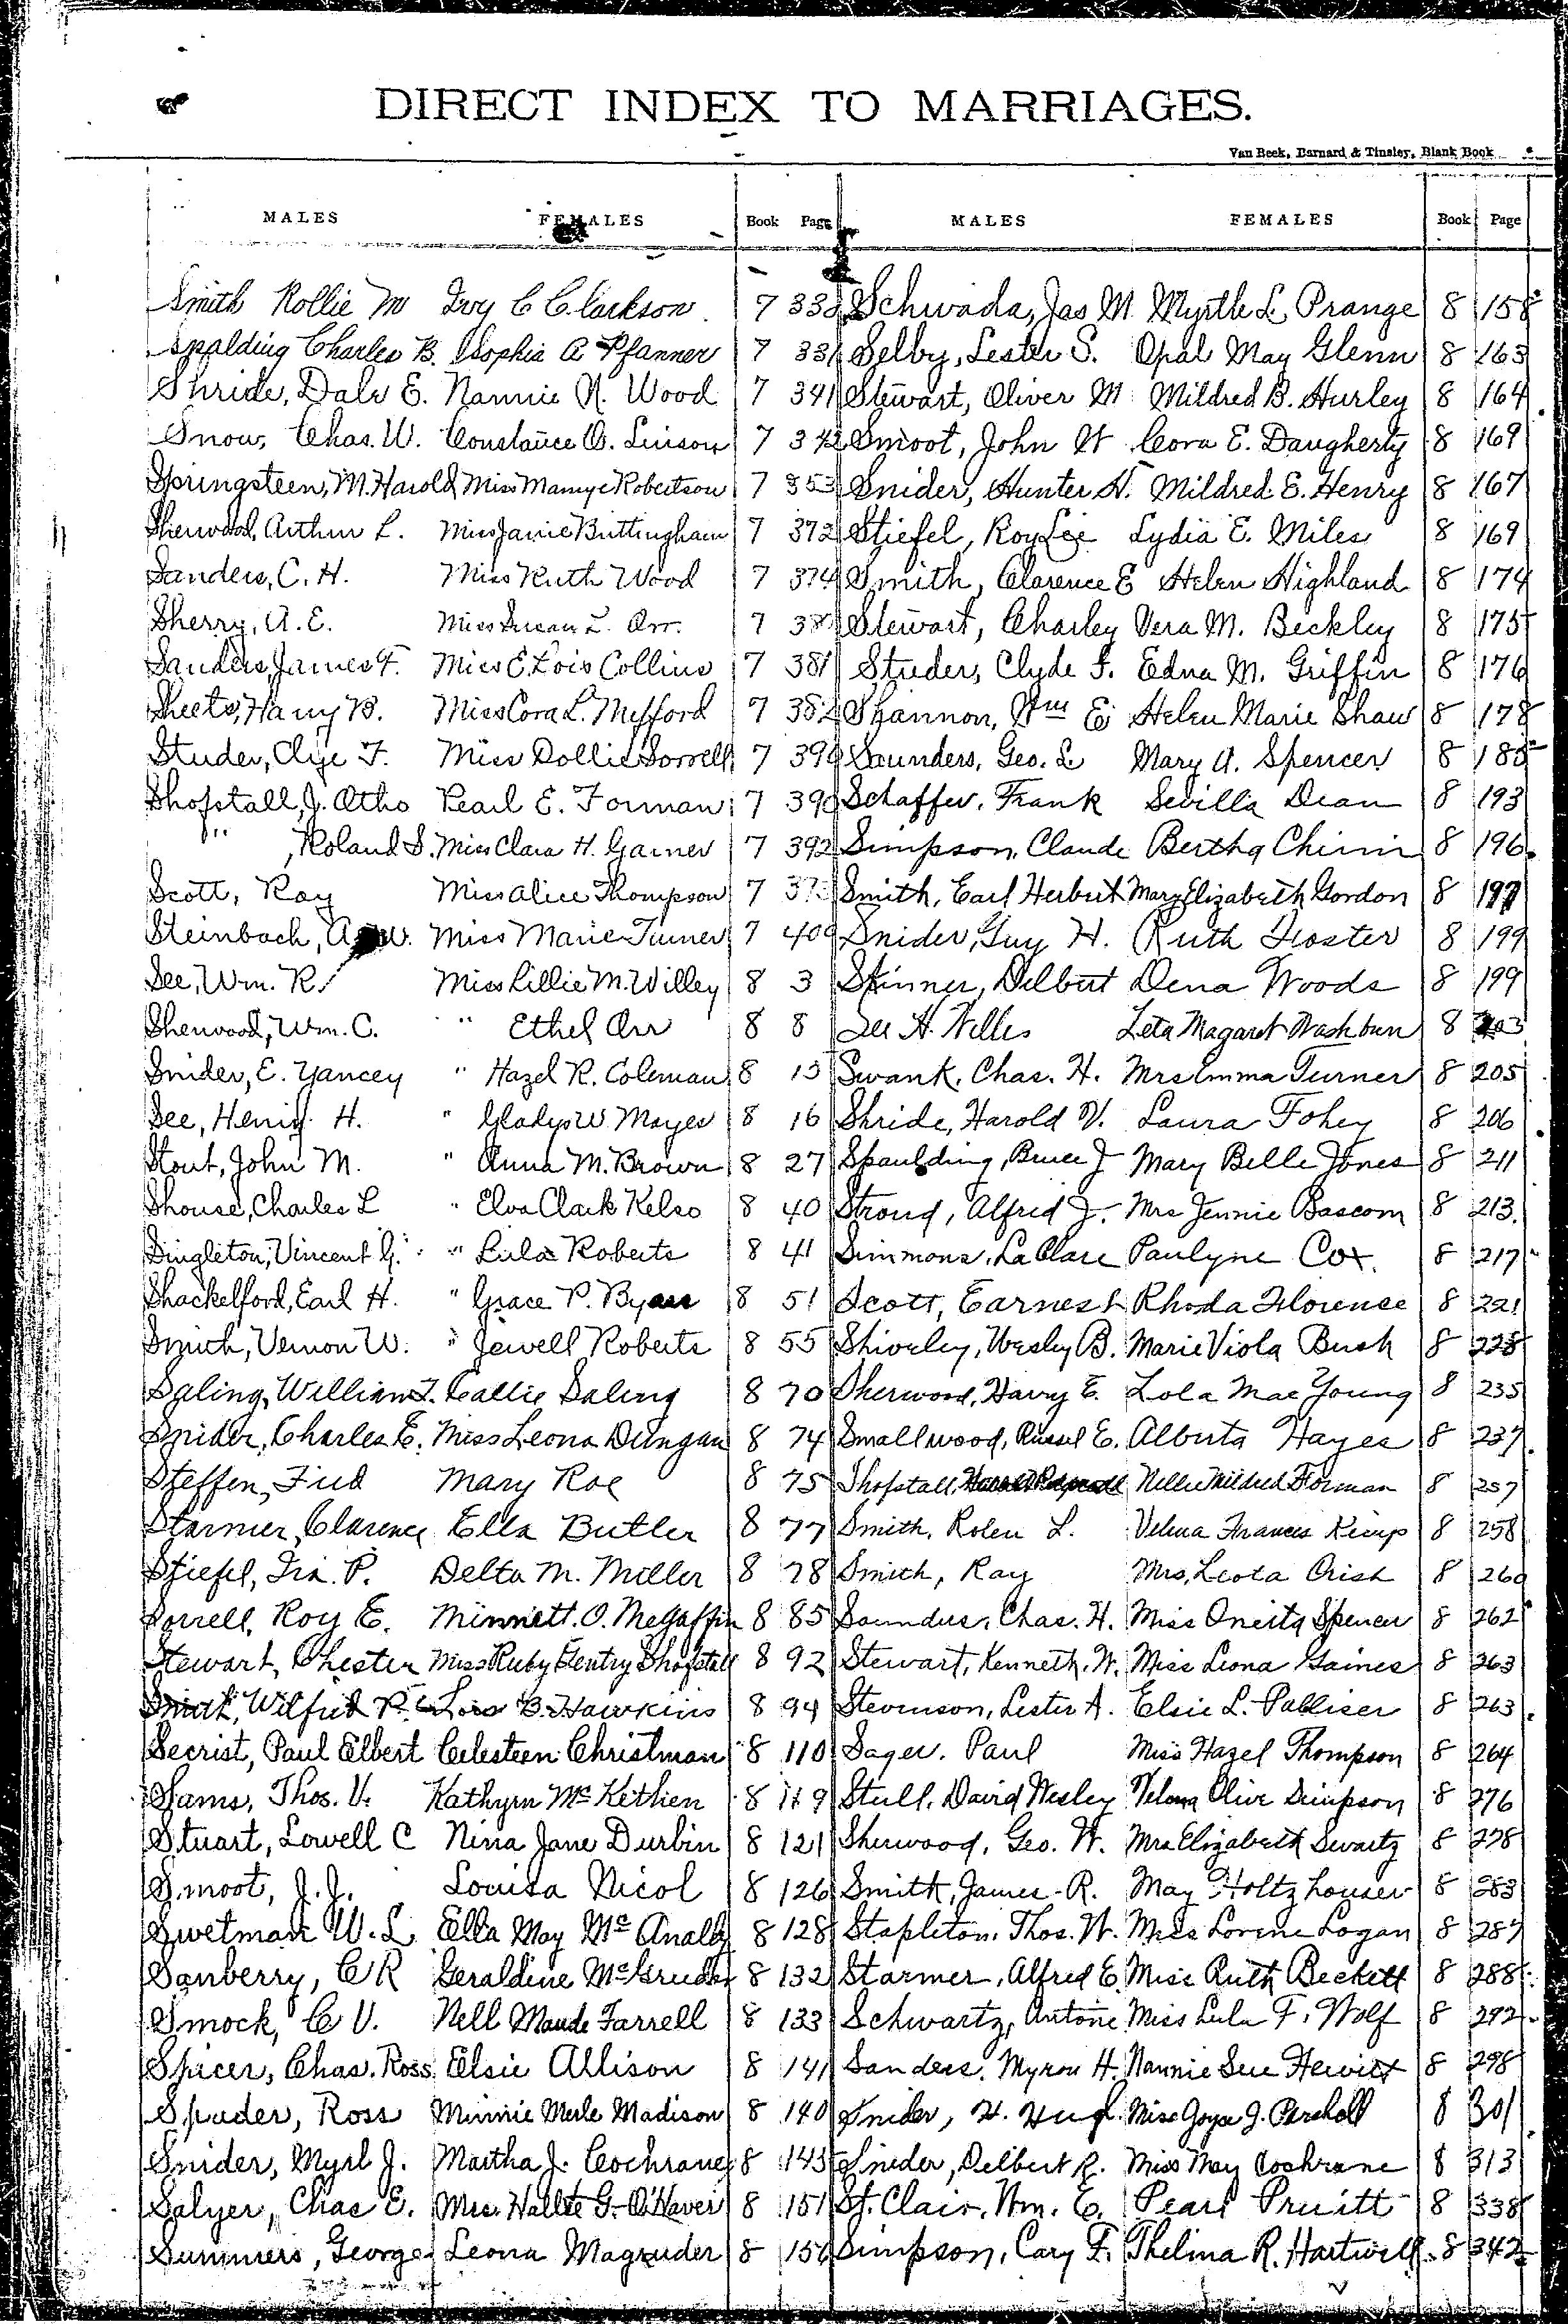 DIRECT INDEX TO MARRIAGES.
Van Beek, Barnard & Tinsley, Blank Book
MALES FEMALES Book Page MALES FEMALES Book Page
Smith Rollie M Ivy C Clarkson 7 Schwada, Jas M. Myrtle L. Prange 8 158
Spalding Charles B. Sophia A Pfanner 7 331 Selby, Lester S. Opal May Glenn 8 163
Shride, Dale E. Nannie N. Wood 7 341 Stewart, Oliver M Mildred B. Hurley 8 164
Snow, Chas. W. Constance O. Linson 7 342 Smoot, John W Cora E. Daugherty 8 169
Springsteen, M. Harold Miss Mamye Robertson 7 353 Snider, Hunter H. Mildred E. Henry 8 167
Sherwood, Arthur L. Miss Janie Brittingham 7 372 Stiefel, Roy Lee Lydia E. Miles 8 169
Sanders, C. H. Miss Ruth Wood 7 374 Smith, Clarence E Helen Highland 8 174
Sherry, A. E. Miss Susan L. Orr. 7 Stewart, Charley Vera M. Beckley 8 175
Sanders, James F. Miss E. Lois Collins 7 381 Studer, Clyde F. Edna M. Griffin 8 176
Sheets, Harry B. Miss Cora L. Mefford 7 382 Shannon, Wm E Helen Marie Shaw 8 178
Studer, Clye F. Miss Dollie Sorrell 7 390 Saunders, Geo. L. Mary A. Spencer 8 185
Shofstall, J. Otho Pearl E. Forman 7 390 Schaffer, Frank Sevilla Dean 8 193
" , Roland S. Miss Clara H. Garner 7 392 Simpson, Claude Bertha 8 196
Scott, Ray Miss Alice Thompson 7 Smith, Earl Herbert Mary Elizabeth Gordon 8 197
Steinbach, W. Miss Marie Turner 7 400 Snider, Guy H. Ruth Foster 8 199
See, Wm. R. Miss Lillie M. Willey 8 3 Skinner, Delbert Dena Woods 8 199
Sherwood, Wm. C. " Ethel Orr 8 8 See H. Willis Leta Magaret Washburn 8 203
Snider, E. Yancey " Hazel R. Coleman 8 15 Swank, Chas. H. Mrs Emma Turner 8 205
See, Henry H. " Gladys W Mayes 8 16 Shride, Harold V. Laura Fohey 8 206
Stout, John M. " Anna M. Brown 8 27 Spaulding, Bruce J Mary Belle Jones 8 211
Shouse, Charles L " Elva Clark Kelso 8 40 Stroud, Alfred J. Mrs Jennie Bascom 8 213
Singleton, Vincent G. " Lula Roberts 8 41 Simmons, La Clare Paulyne Cox. 8 217
Shackelford, Earl H. " Grace P. Byars 8 51 Scott, Earnest Rhoda Florense 8 221
Smith, Vernon W. " Jewell Roberts 8 55 Shiveley, Wesley B. Marie Viola Bush 8 228
Saling, William T. Callie Saling 8 70 Sherwood, Harry E. Lola Mae Young 8 235
Snider, Charles E. Miss Leona Dungan 8 74 Smallwood, Russel E. Alberta Hayes 8 237
Steffen, Fred Mary Roe 8 75 Shofstall, Nellie Mildred Forman 8 257
Starmer, Clarence Ella Butler 8 77 Smith, Rolen L. Velma Frances Kemp 8 258
Stiefel, Ira. P. Delta M. Miller 8 78 Smith, Ray Mrs, Leota Crist 8 260
Sorrell, Roy E. Minnett. O. McGaffin 8 85 Saunders, Chas. H. Miss Oneita Spencer 8 262
Stewart, Chester Miss Ruby Gentry Shofstall 8 92 Stewart, Kenneth. W. Miss Leona Gaines 8 263
Smith, Wilfred P. Lois B. Hawkins 8 94 Stevenson, Lester A. Elsie L. Palliser 8 263
Secrist, Paul Elbert Celesteen Christman 8 110 Sager. Paul Miss Hazel Thompson 8 264
Sams, Thos. V. Kathyrn McKethen 8 119 Stull, David Wesley Velma Olive Simpson 8 276
Stuart, Lowell C Nina Jane Durbin 8 121 Sherwood, Geo. W. Mrs Elizabeth Swartz 8 278
Smoot, J. J. Louisa Nicol 8 126 Smith, James R. May Holtzhouser 8 283
Swetman W. L. Ella May McAnally 8 128 Stapleton, Thos. W. Miss Lorene Logan 8 287
Sanberry, C R Geraldine McGruder 8 132 Starmer, Alfred E. Miss Ruth Beckett 8 288
Smock, C V. Nell Maude Farrell 8 133 Schwartz, Antone Miss Lula F. Wolf 8 292
Spicer, Chas. Ross Elsie Allison 8 141 Sanders, Myron H. Nannie Sue Hewitt 8 298
Spuder, Ross Minnie Merle Madison 8 140 Snider, H. Hugh Miss Joyce J. Parshall 8 301
Snider, Myrl J. Martha J. Cochrane 8 145 Snider, Delbert R. Miss May Cochrane 8 313
Salyer, Chas E. Mrs. Hallie G. O'Haver 8 151 St. Clair, Wm. E. Pearl Pruitt 8 338
Summers, George Leona Magruder 8 156 Simpson, Cary F. Thelma R. Hartwell 8 342